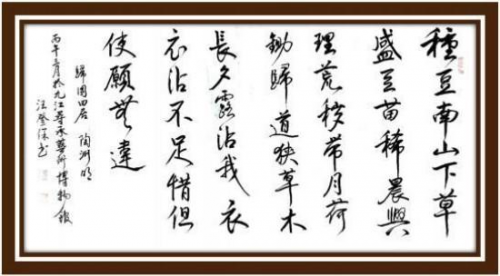 種豆南山下草
盛豆苗稀晨興
理荒穢帶月荷
鋤歸道狹草木
長夕露沾我衣
衣沾不足惜但
使願無違
歸園田居 陶淵明
丙午 月於九江 承藝術博物館
汪登 書